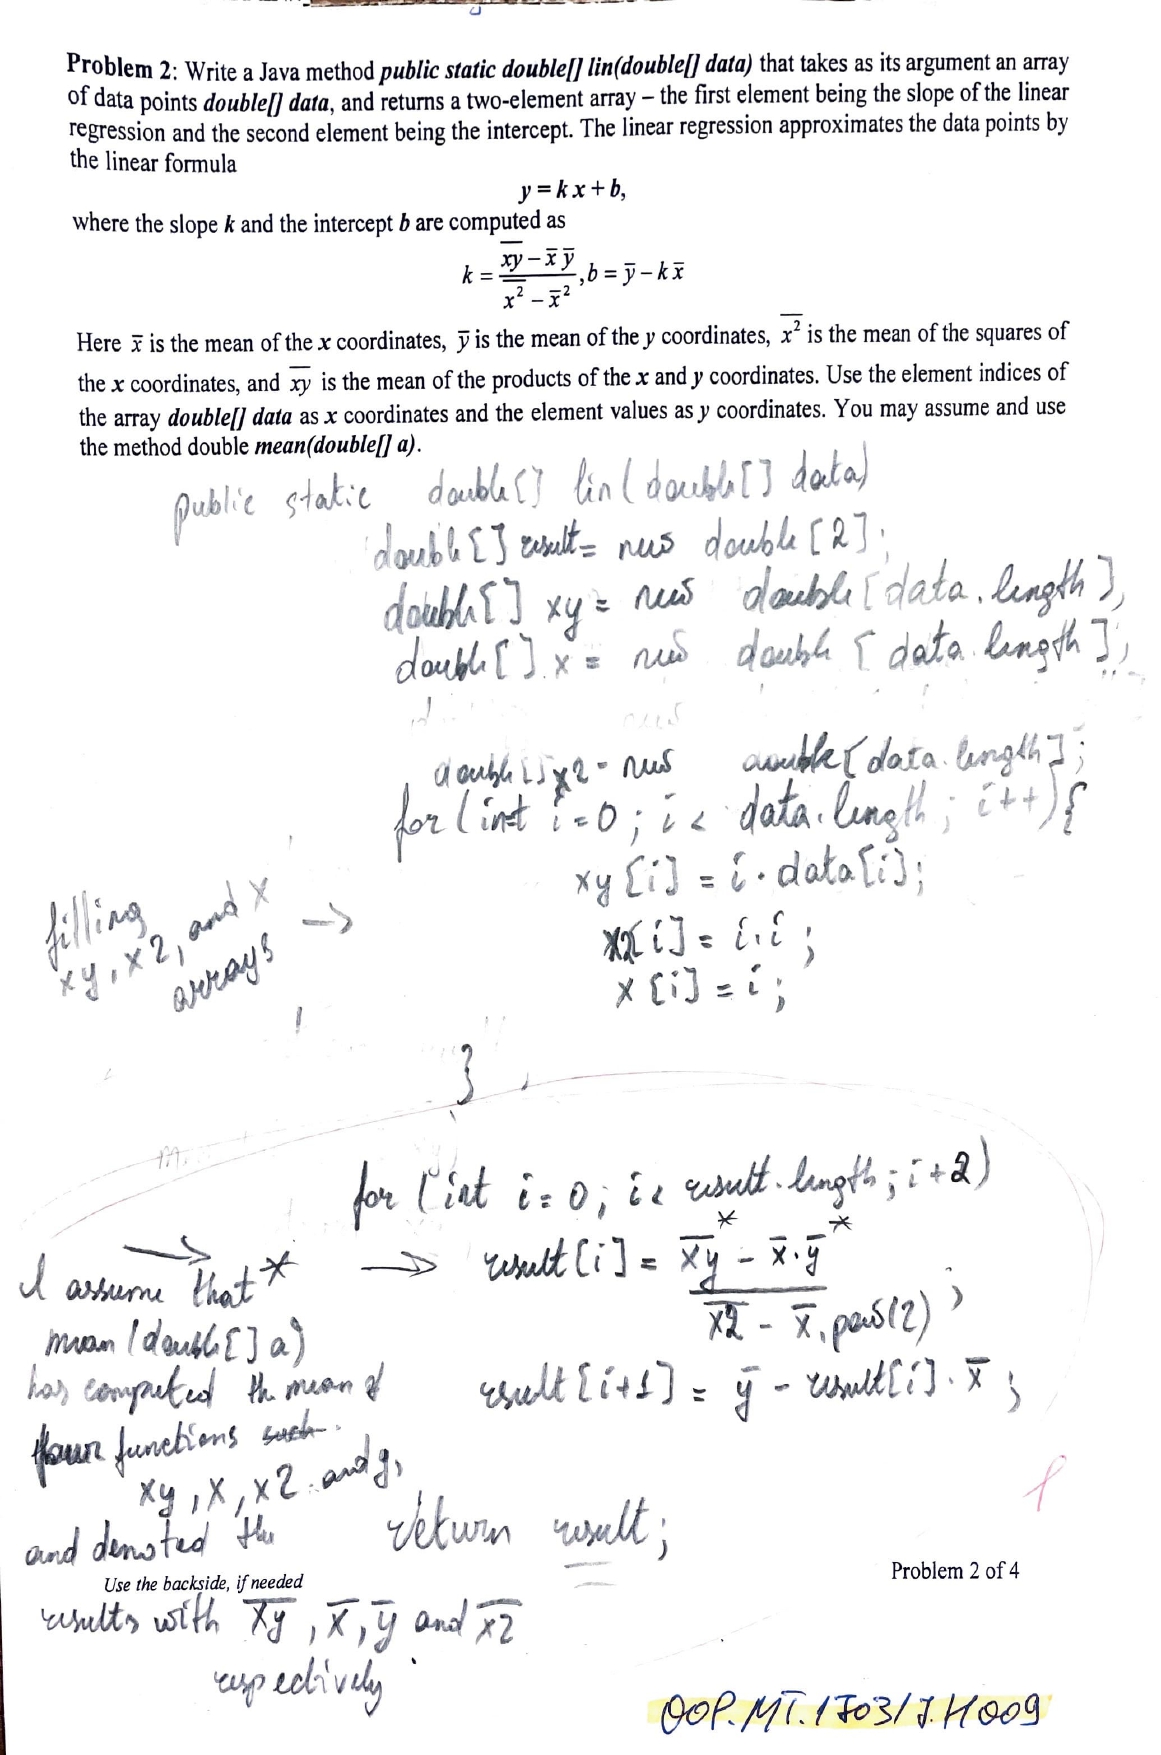 Problem 2: Write a Java method public static double[] lin(double[] data) that takes as its argument an array
of data points double[] data, and returns a two-element array – the first element being the slope of the linear
regression and the second element being the intercept. The linear regression approximates the data points by
the linear formula
y = k x + b,
where the slope k and the intercept b are computed as
k = (x̅y̅ – x̄ ȳ) / (x̅²̅ – x̄²) , b = ȳ – k x̄
Here x̄ is the mean of the x coordinates, ȳ is the mean of the y coordinates, x̅²̅ is the mean of the squares of
the x coordinates, and x̅y̅ is the mean of the products of the x and y coordinates. Use the element indices of
the array double[] data as x coordinates and the element values as y coordinates. You may assume and use
the method double mean(double[] a).
public static double[] lin(double[] data)
double[] result = new double[2];
double[] xy = new double[data.length],
double[] x = new double[data.length];
double[] x2 = new double[data.length];
for (int i=0; i < data.length; i++){
xy[i] = i · data[i];
x2[i] = i·i;
x[i] = i;
filling
xy, x2, and x
arrays
→
}
for (int i=0; i < result.length; i+2)
→ result[i] = (x̅y̅* – x̄·ȳ*) / (x̅2̅ – x̄.pow(2)) ;
result[i+1] = ȳ – result[i]. x̄ ;
return result;
I assume that *
mean(double[] a)
has computed the mean of
four functions such
xy, x, x2 and y,
and denoted the
Use the backside, if needed
Problem 2 of 4
results with x̅y̅, x̄, ȳ and x̅2̅
respectively.
OOP.MT.1703/J.H009